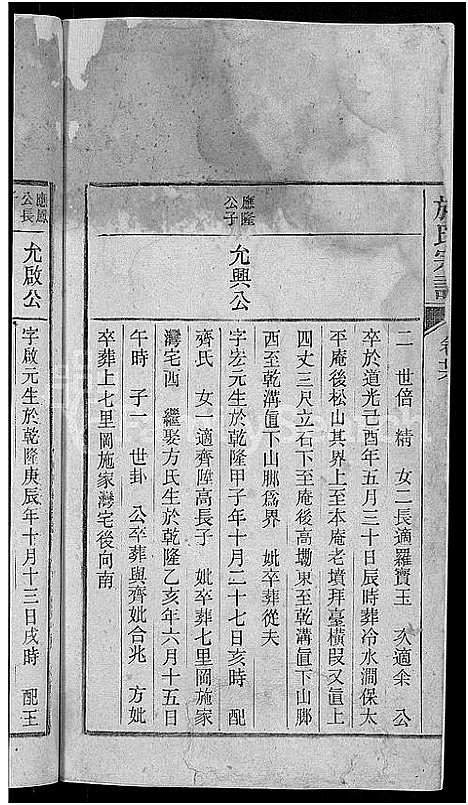 施氏宗譜
卷六
二　世倍　精　女二長適羅寶玉　次適余　公
卒於道光己酉年五月三十日辰時葬冷水澗保太
平庵後松山其界上至本庵老墳拜臺橫段又直上
四丈三尺立石下至庵後高墈東至乾溝直下山腳
西至乾溝直下山腳爲界　妣卒葬從夫
應隆
公子
允興公
字宏元生於乾隆甲子年十月二十七日亥時　配
齊氏　女一適齊　高長子　妣卒葬七里岡施家
灣宅西　繼娶方氏生於乾隆乙亥年六月十五日
午時　子一　世卦　公卒葬與齊妣合兆　方妣
卒葬上七里岡施家灣宅後向南
應鳳
公長
允啟公
字啟元生於乾隆庚辰年十月十三日戌時　配王